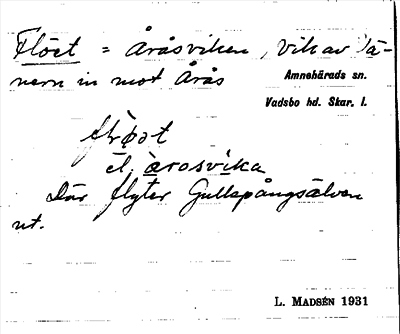 Flöet = Åråsviken, vik av Vä-
nern in mot Årås
Amnehärads sn.
Vadsbo hd. Skar. l.
el. årosvika
Där flyter Gullspångsälven
ut.
L. MADSÉN 1931